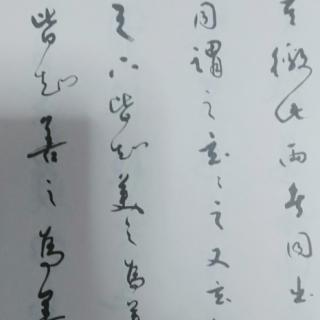 其徼此兩者同出
同謂之玄〻之又玄
天下皆知美之為美
皆知善之為善